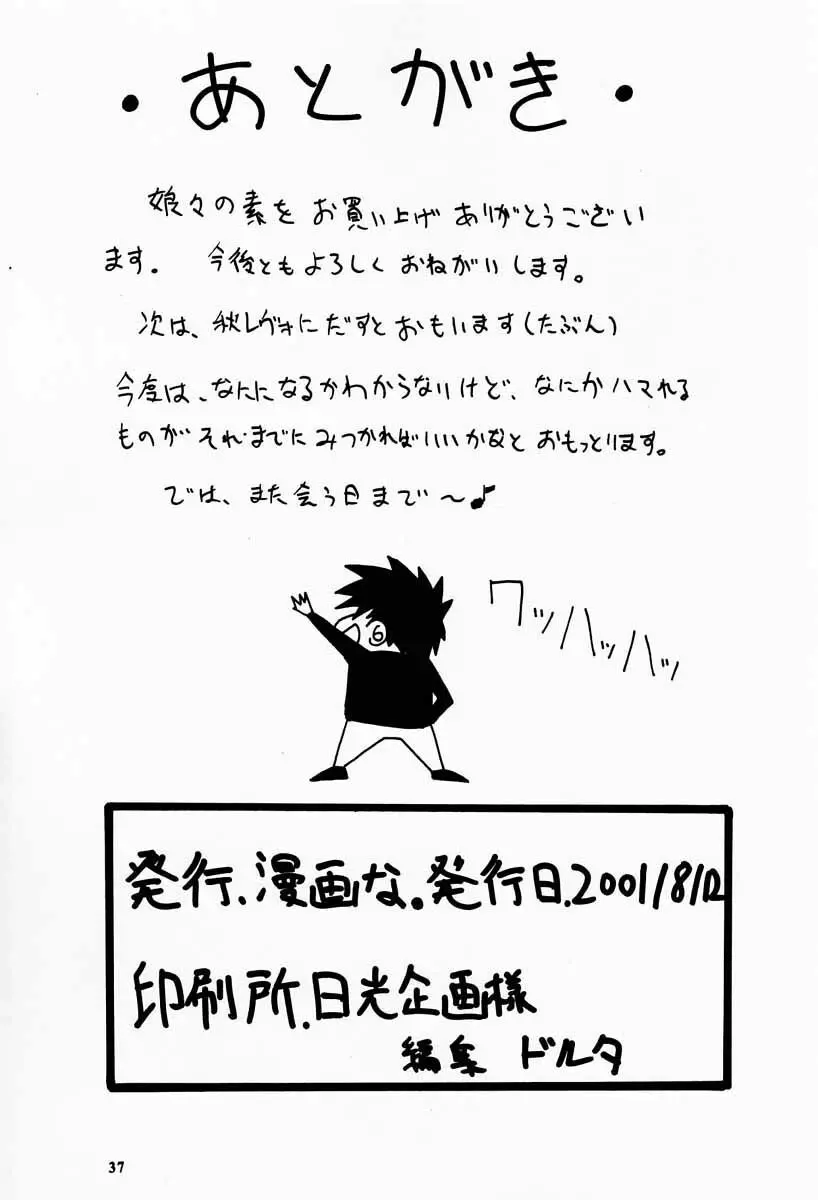 ・あとがき・
娘々の素をお買い上げありがとうござい
ます。 今後ともよろしくおねがいします。
次は、秋レヴォにだすとおもいます(たぶん)
今度は、なにになるかわからないけど、なにかハマれる
ものがそれまでにみつかればいいかなとおもっとります。
では、また会う日まで〜♪
ワッハッハッ
発行.漫画な。発行日.2001/8/12
印刷所.日光企画様
編集 ドルタ
37